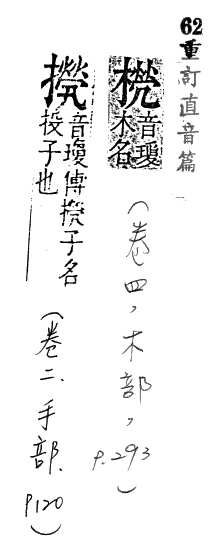 62重訂直音篇
㮪音瓊木名
(卷四,木部,P.293)
㩯音瓊博㩯子名投子也
(卷二、手部、P120)